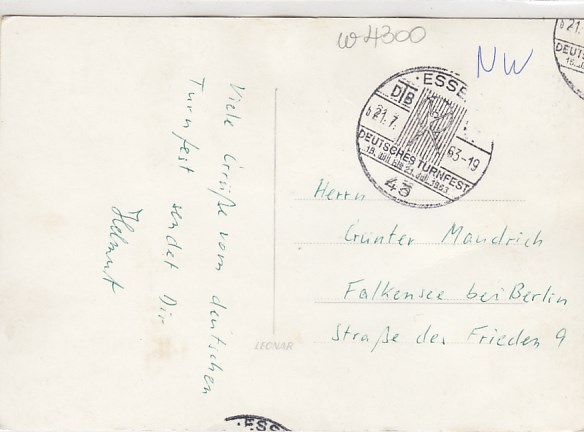 w4300
NW
ESSE
DTB
21.7.
63-19
DEUTSCHES TURNFEST
16. Juli bis 21. Juli 1963
43
Viele Grüße vom deutschen
Turnfest sendet Dir
Helmut
Herrn
Günter Mandrich
Falkensee bei Berlin
Straße der Frieden 9
LEONAR
21.
DEUT
ESS